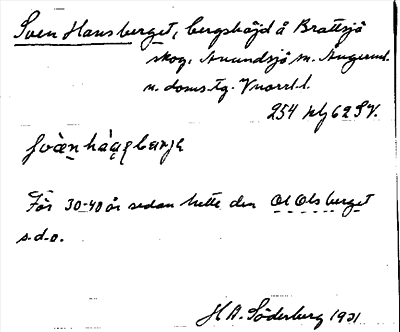 Sven Hansberget, bergshöjd å Brattsjö
skog, Anundsjö sn. Ångerml.
n. doms.tg. Vnorrl. l.
254
För 30-40 år sedan hette den Ol Olsberget
s.d.o.
H A. Söderberg 1931